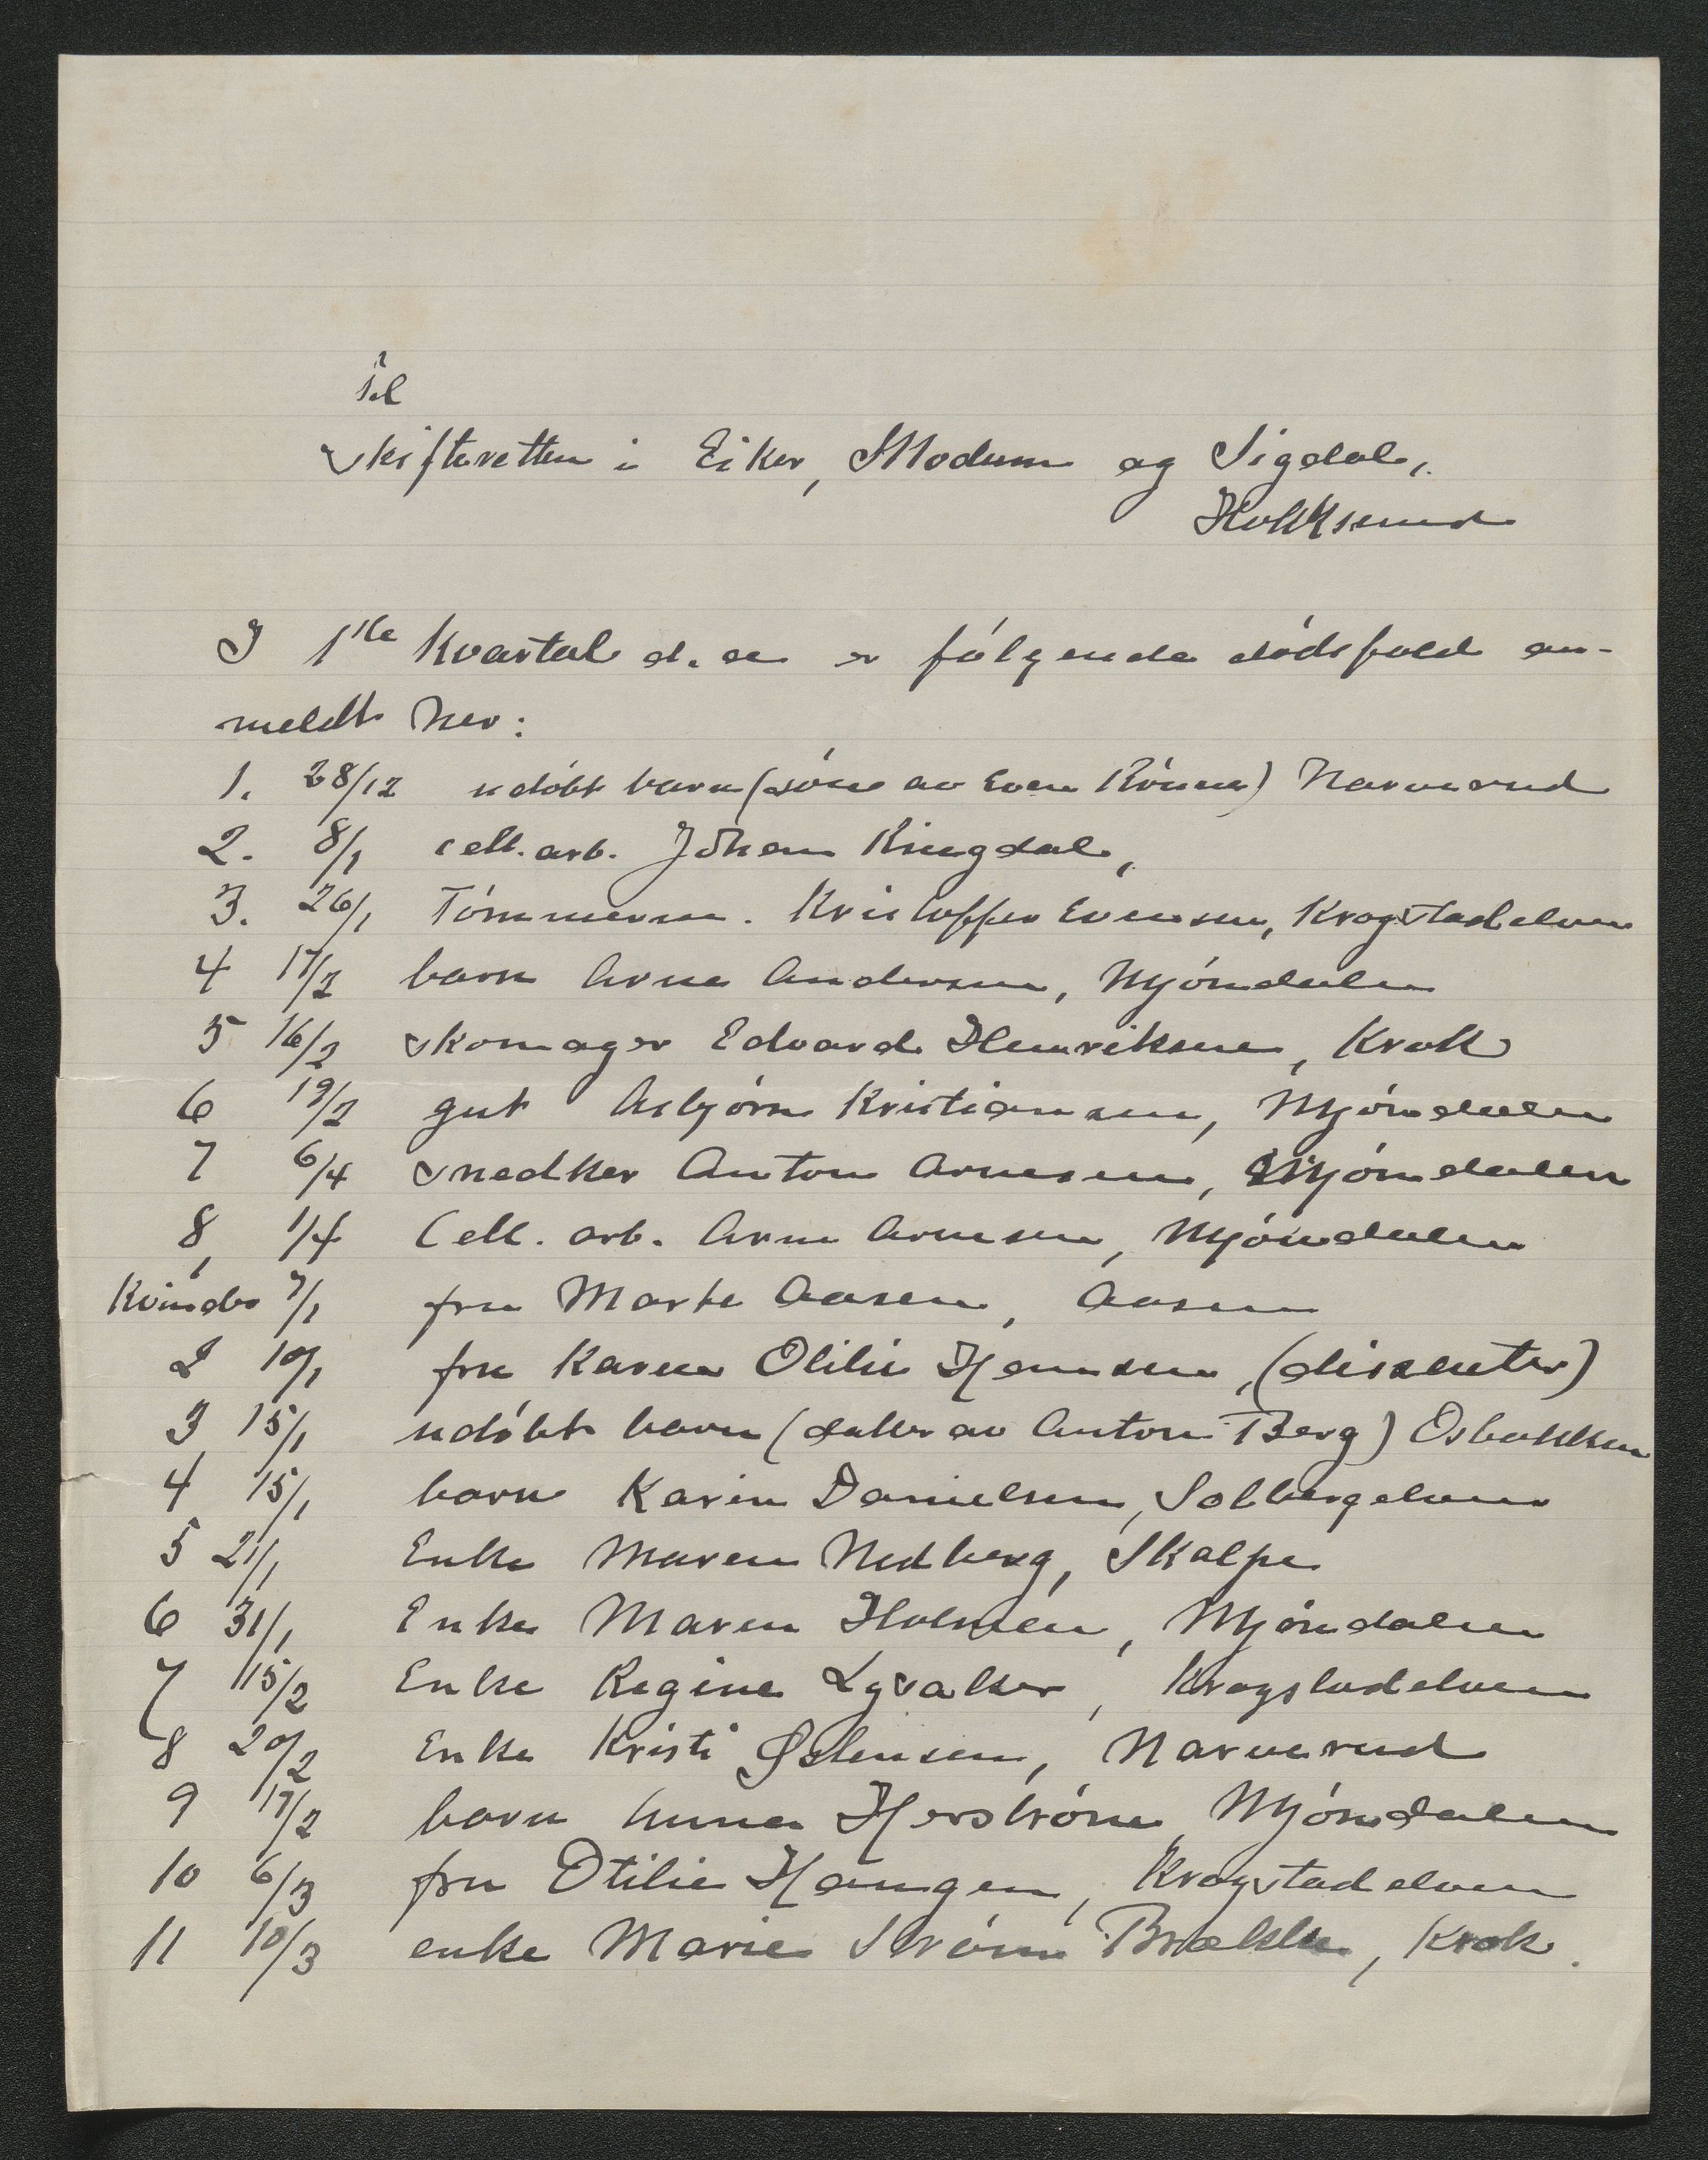 Til
Skifteretten i Eiker, Modum og Sigdal,
Hokksund
I 1ste Kvartal d. a er følgende dødsfald an-
meldt her:
1. 28/12 udøbt barn (søn av Even Rønne) Narverud
2. 8/1 cell. arb. Johan Ringdal,
3. 26/1 Tømmerm. Kristoffer Evensen, Krogstadelven
4 17/2 barn Arne Andersen, Mjøndalen
5 16/2 skomager Edvard Henriksen, Krok
6 19/2 gut Asbjørn Kristiansen, Mjøndalen
7 6/4 Snedker Anton Arnesen, Mjøndalen
8, 1/4 Cell. arb. Arne Arnesen, Mjøndalen
Kvinder 7/1 fru Marte Aasen, Aasen
2 10/1 fru Karen Otilie Hansen, (dissenter)
3 15/1 udøbt barn (datter av Anton Berg) Osbakken
4 15/1 barn Karin Danielsen, Solbergelven
5 21/1 Enke Maren Nedberg, Skalpe
6 31/1 Enke Maren Holmen, Mjøndalen
7 15/2 Enke Regine, Krogstadelven
8 20/2 Enke Kristi Østensen, Narverud
9 17/2 barn Anna Herstrøm Mjøndalen
10 6/3 fru Otilie Haugen, Krogstadelven
11 10/3 enke Marie Strøm Brække, Krok.